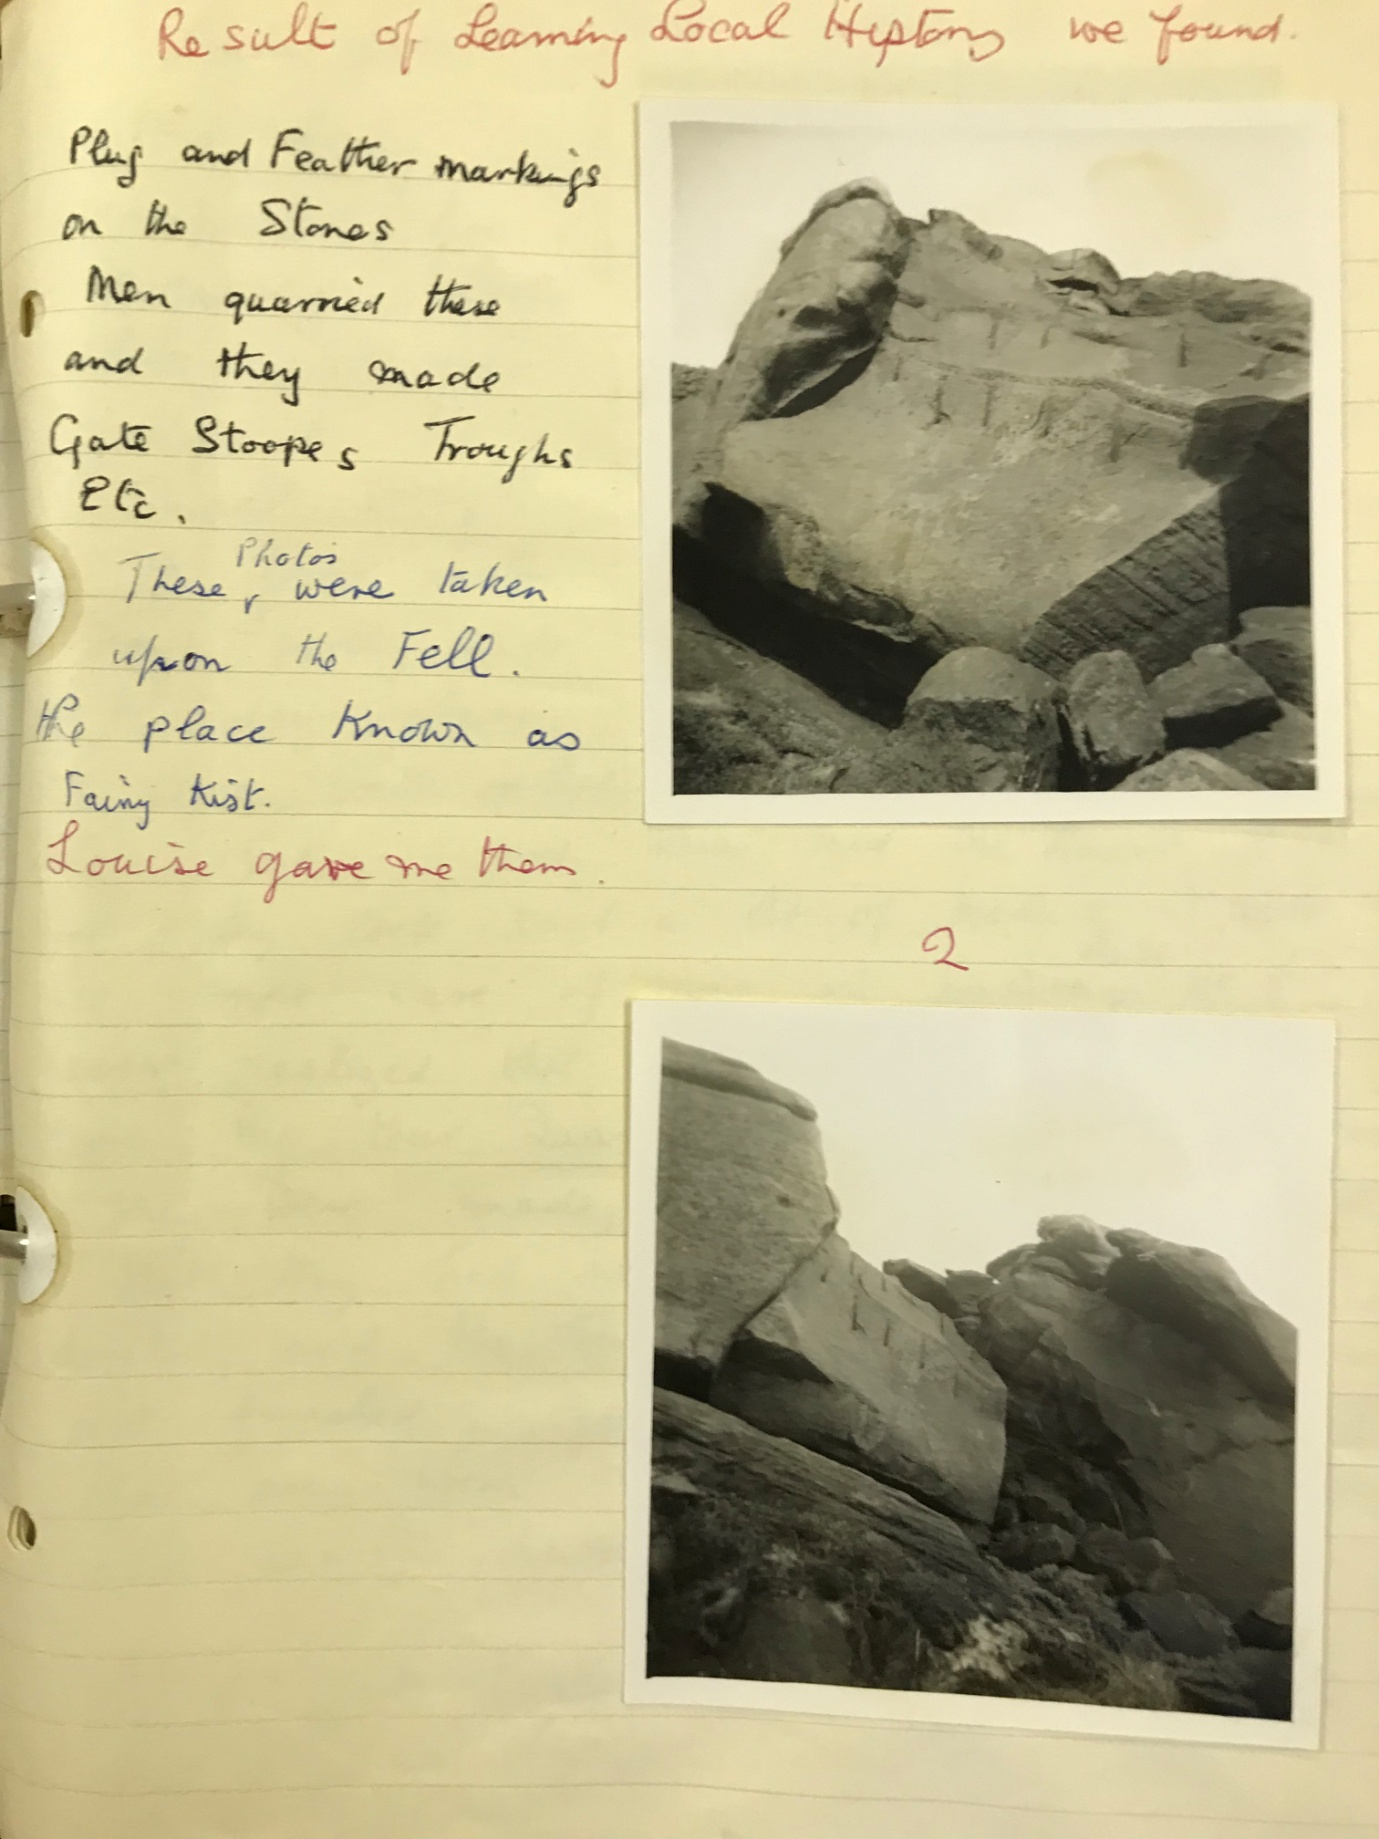 Result of Learning Local History we found.
Plug and Feather markings
on the Stones
Men quarried these
and they made
Gate Stoopes Troughs
Etc.
Photos
These, were taken
upon the Fell.
the place Known as
Fairy Kist.
Louise gave me them.
2